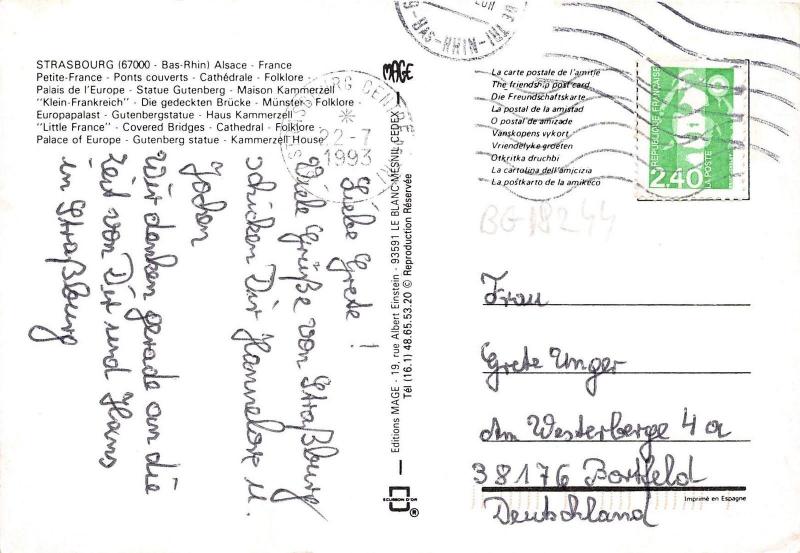 STRASBOURG (67000 - Bas-Rhin) Alsace - France
Petite-France - Ponts couverts - Cathédrale - Folklore
Palais de l'Europe - Statue Gutenberg - Maison Kammerzell
"Klein-Frankreich" - Die gedeckten Brücke - Münster - Folklore
Europapalast - Gutenbergstatue - Haus Kammerzell
"Little France" - Covered Bridges - Cathedral - Folklore
Palace of Europe - Gutenberg statue - Kammerzell House
Liebe Grete !
Viele Grüße von Straßburg
schicken Dir Hannelore u.
Jochen
Wir denken gerade an die
Zeit von Dir und Hans
in Straßburg
22-7
1993
MAGE
Editions MAGE - 19, rue Albert Einstein - 93591 LE BLANC-MESNIL CEDEX
Tél (16.1) 48.65.53.20 © Reproduction Réservée
ECUSSON D'OR
®
BAS-RHIN
La carte postale de l'amitié
The friendship post card
Die Freundschaftskarte
La postal de la amistad
O postal de amizade
Vanskopens vykort
Vriendelyke groeten
Otkritka druchbi
La cartolina dell'amicizia
La postkarto de la amikeco
REPUBLIQUE FRANÇAISE
2,40
LA POSTE
BG18244
Frau
Grete Unger
Am Westerberge 4 a
38176 Bortfeld
Deutschland
Imprimé en Espagne